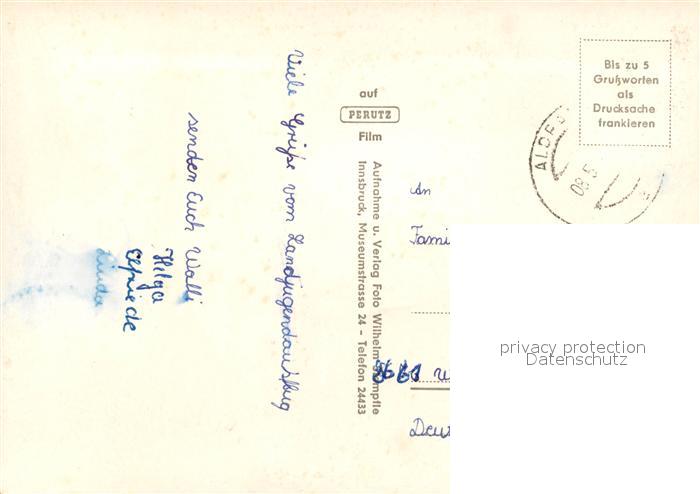 Viele Grüße vom Landjugendausflug
senden Euch Walli
Helga
Elfriede
Linda
auf
PERUTZ
Film
Aufnahme u. Verlag Foto Wilhelm Stempfle
Innsbruck, Museumstrasse 24 - Telefon 24433
Bis zu 5
Grußworten
als
Drucksache
frankieren
08 5
An
privacy protection
Datenschutz